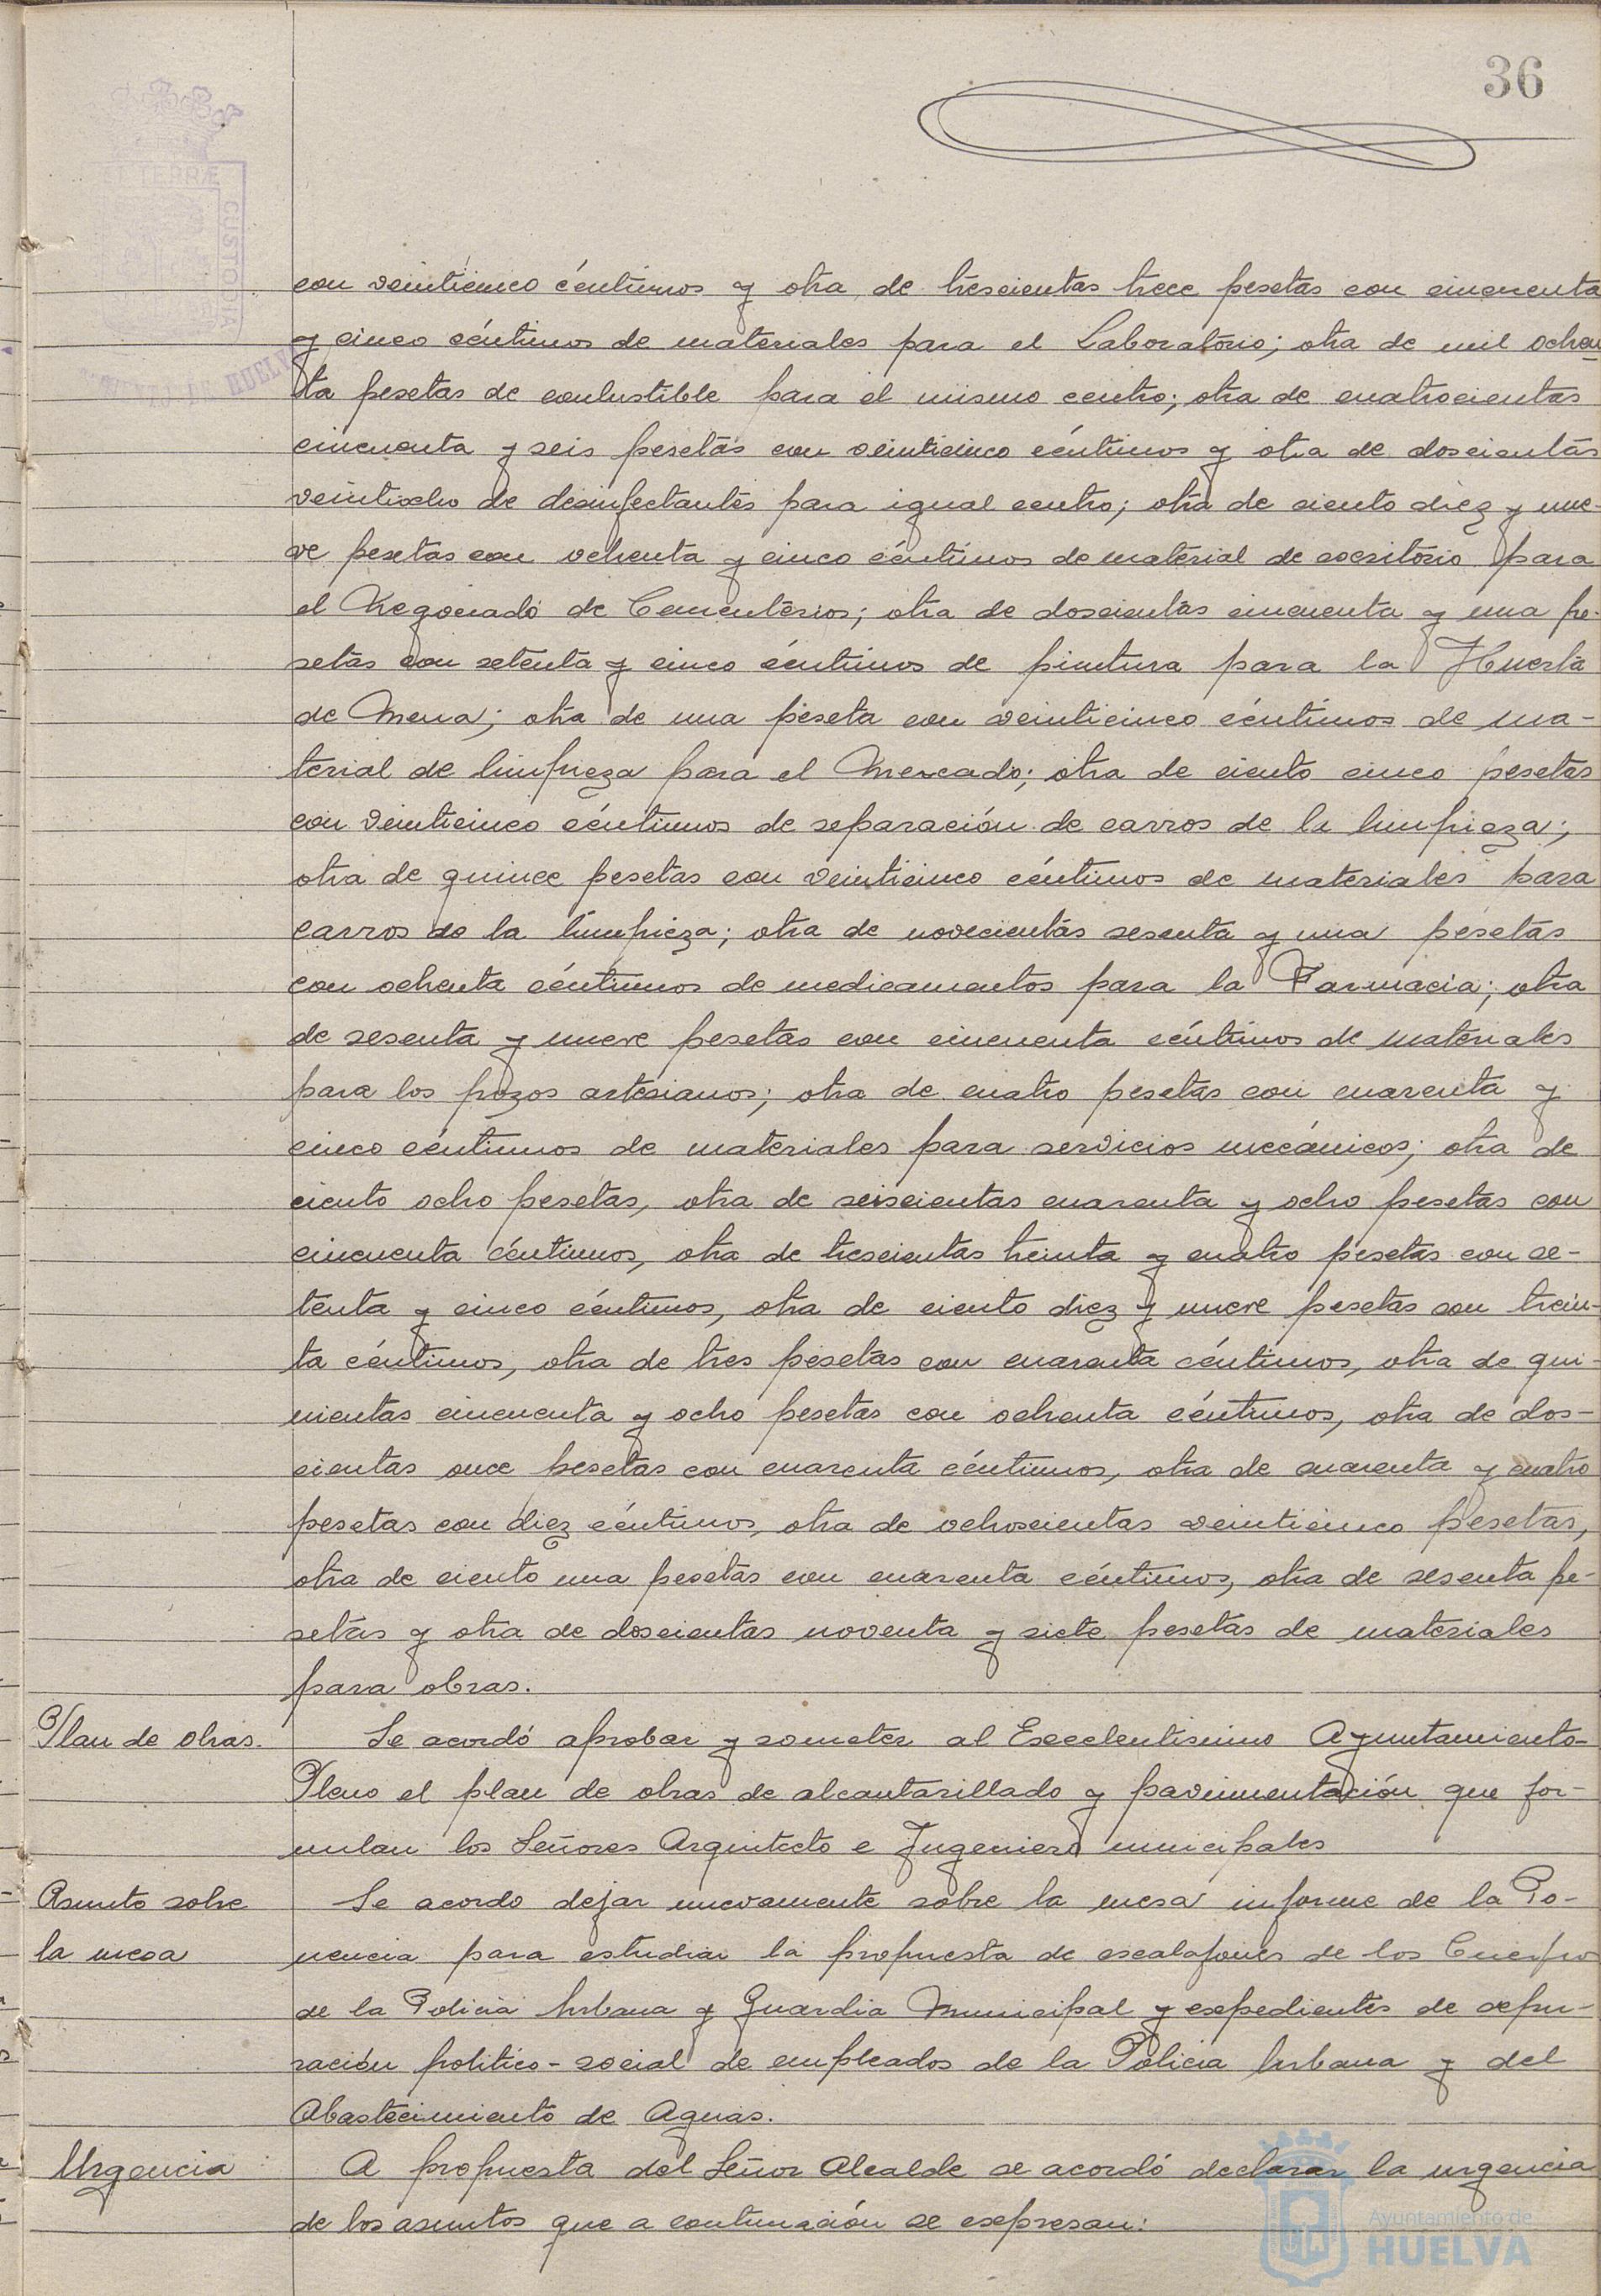 36
con veinticinco céntimos y otra de trescientas trece pesetas con cincuenta
y cinco céntimos de materiales para el Laboratorio; otra de mil ochen-
ta pesetas de conbustible para el mismo centro; otra de cuatrocientas
cincuenta y seis pesetas con veinticinco céntimos y otra de doscientas
veintiocho de desinfectantes para igual centro; otra de ciento diez y nue-
ve pesetas con ochenta y cinco céntimos de material de escritorio para
el Negociado de Cementerios; otra de doscientas cincuenta y una pe-
setas con setenta y cinco céntimos de pintura para la Huerta
de Mena; otra de una peseta con veinticinco céntimos de ma-
terial de limpieza para el Mercado; otra de ciento cinco pesetas
con veinticinco céntimos de separación de carros de la limpieza;
otra de quince pesetas con veinticinco céntimos de materiales para
carros de la limpieza; otra de novecientas sesenta y una pesetas
con ochenta céntimos de medicamentos para la Farmacia; otra
de sesenta y nueve pesetas con cincuenta céntimos de materiales
para los pozos artesianos; otra de cuatro pesetas con cuarenta y
cinco céntimos de materiales para servicios mecánicos; otra de
ciento ocho pesetas, otra de seiscientas cuarenta y ocho pesetas con
cincuenta céntimos, otra de trescientas treinta y cuatro pesetas con se-
tenta y cinco céntimos, otra de ciento diez y nueve pesetas con trein-
ta céntimos, otra de tres pesetas con cuarenta céntimos, otra de qui-
nientas cincuenta y ocho pesetas con ochenta céntimos, otra de dos-
cientas once pesetas con cuarenta céntimos, otra de cuarenta y cuatro
pesetas con diez céntimos, otra de ochocientas veinticinco pesetas,
otra de ciento una pesetas con cuarenta céntimos, otra de sesenta pe-
setas y otra de doscientas noventa y siete pesetas de materiales
para obras.
Plan de obras.
Se acordó aprobar y someter al Excelentisimo Ayuntamiento-
Pleno el plan de obras de alcantarillado y pavimentación que for-
mulan los Señores Arquitecto e Ingeniero municipales
Asunto sobre
la mesa
Se acordo dejar nuevamente sobre la mesa informe de la Po-
nencia para estudiar la propuesta de escalafones de los Cuerpo
de la Policia Urbana y Guardia Municipal y expedientes de depu-
ración politico-social de empleados de la Policia Urbana y del
Abastecimiento de Aguas.
Urgencia
A propuesta del Señor Alcalde se acordó declarar la urgencia
de los asuntos que a continuación se expresan:
TERRÆ
CUSTODIA
DE HUELVA
Ayuntamiento de
HUELVA